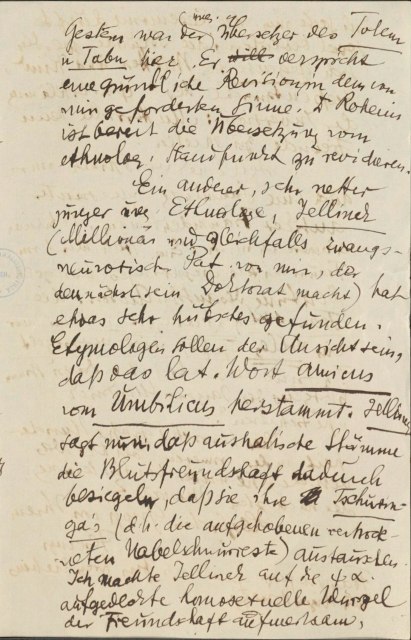 (ung.)
Gestern war der Übersetzer des Totem
u Tabu hier. Er will verspricht
eine gründliche Revision in dem von
mir geforderten Sinne. Dr Roheim
ist bereit die Übersetzung vom
ethnolog. Standpunkt zu revidieren.
Ein anderer, sehr netter
junger ung. Ethnologe, Jellinek
(Millionär und gleichfalls zwangs-
neurotisch Pat. von mir, der
demnächst sein Doktorat macht) hat
etwas sehr hübsches gefunden.
Etymologen sollen der Ansicht sein,
daß das lat. Wort amicus
vom Umbilicus herstammt. Jellinek
sagt nun, daß australische Stämme
die Blutsfreundschaft dadurch
besiegeln, daß sie ihre Tschurun-
ga's (d.h. die aufgehobenen vertrock-
neten Nabelschnurreste) austauschen.
Ich machte Jellinek auf die ψα.
aufgedeckte homosexuelle Wurzel
der Freundschaft aufmerksam,